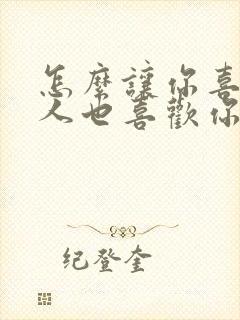 怎麽讓你喜
人也喜歡你
纪登奎